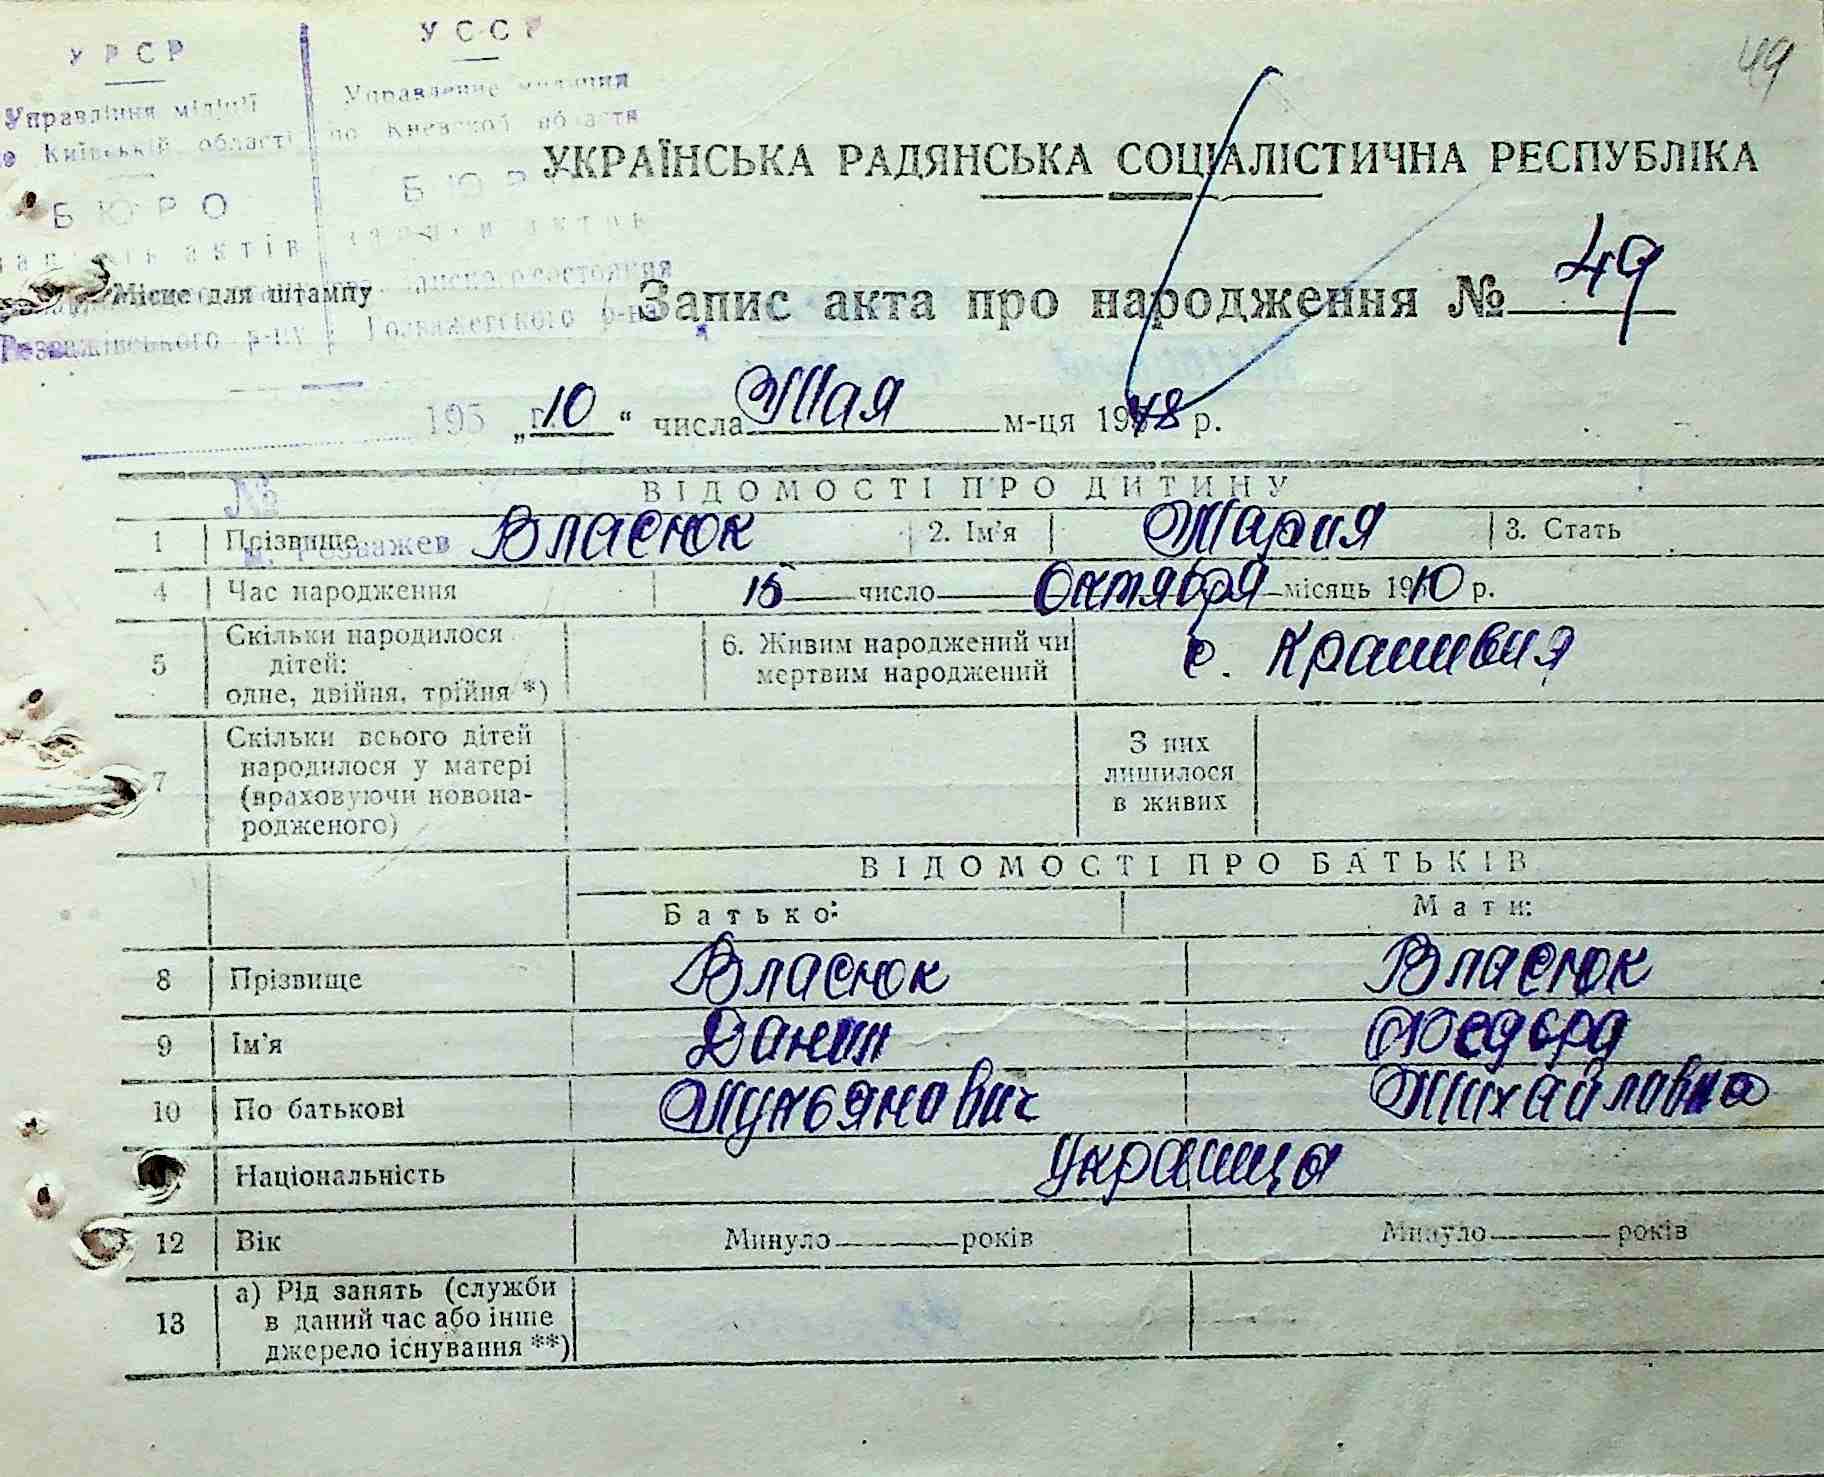 49
УРСР
УССР
Управління міліції
Управление милиции
по Київській області
по Киевской области
БЮРО
БЮРО
УКРАЇНСЬКА РАДЯНСЬКА СОЦІАЛІСТИЧНА РЕСПУБЛІКА
Місце для штампу
Розважівського р-ну
Запис акта про народження № 49
195 г.
„10“ числа Мая м-ця 1948 р.
№
ВІДОМОСТІ ПРО ДИТИНУ
1 Прізвище Власюк 2. Ім'я Мария 3. Стать
4 Час народження 15 число Октября місяць 1910 р.
5 Скільки народилося дітей: одне, двійня, трійня *) 6. Живим народжений чи мертвим народжений с.
7 Скільки всього дітей народилося у матері (враховуючи новонародженого) З них лишилося в живих
ВІДОМОСТІ ПРО БАТЬКІВ
Батько: Мати:
8 Прізвище Власюк Власюк
9 Ім'я Данил Федора
10 По батькові Лукьянович Михайлавна
Національність Украинца
12 Вік Минуло років Минуло років
13 а) Рід занять (служби в даний час або інше джерело існування **)